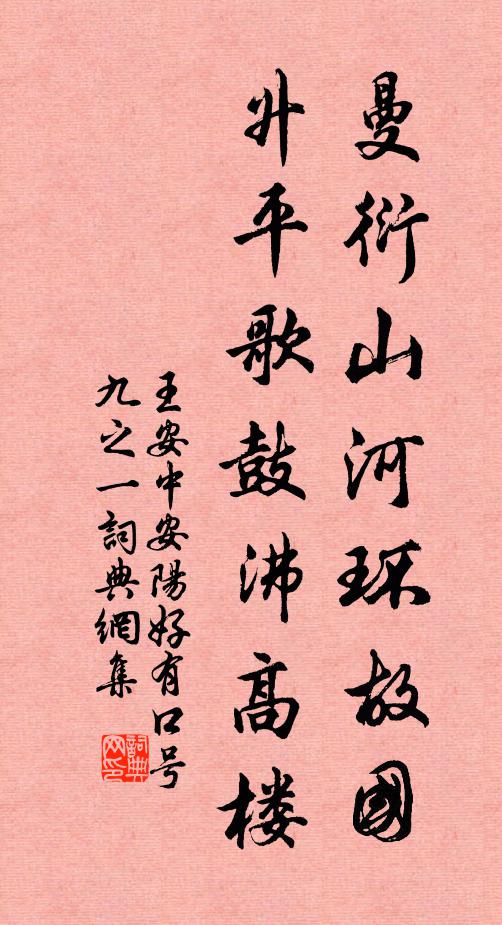 曼衍山河环故國
升平歌鼓沸高楼
王安中安陽好有口号
九之一詞典網集
詞典网印